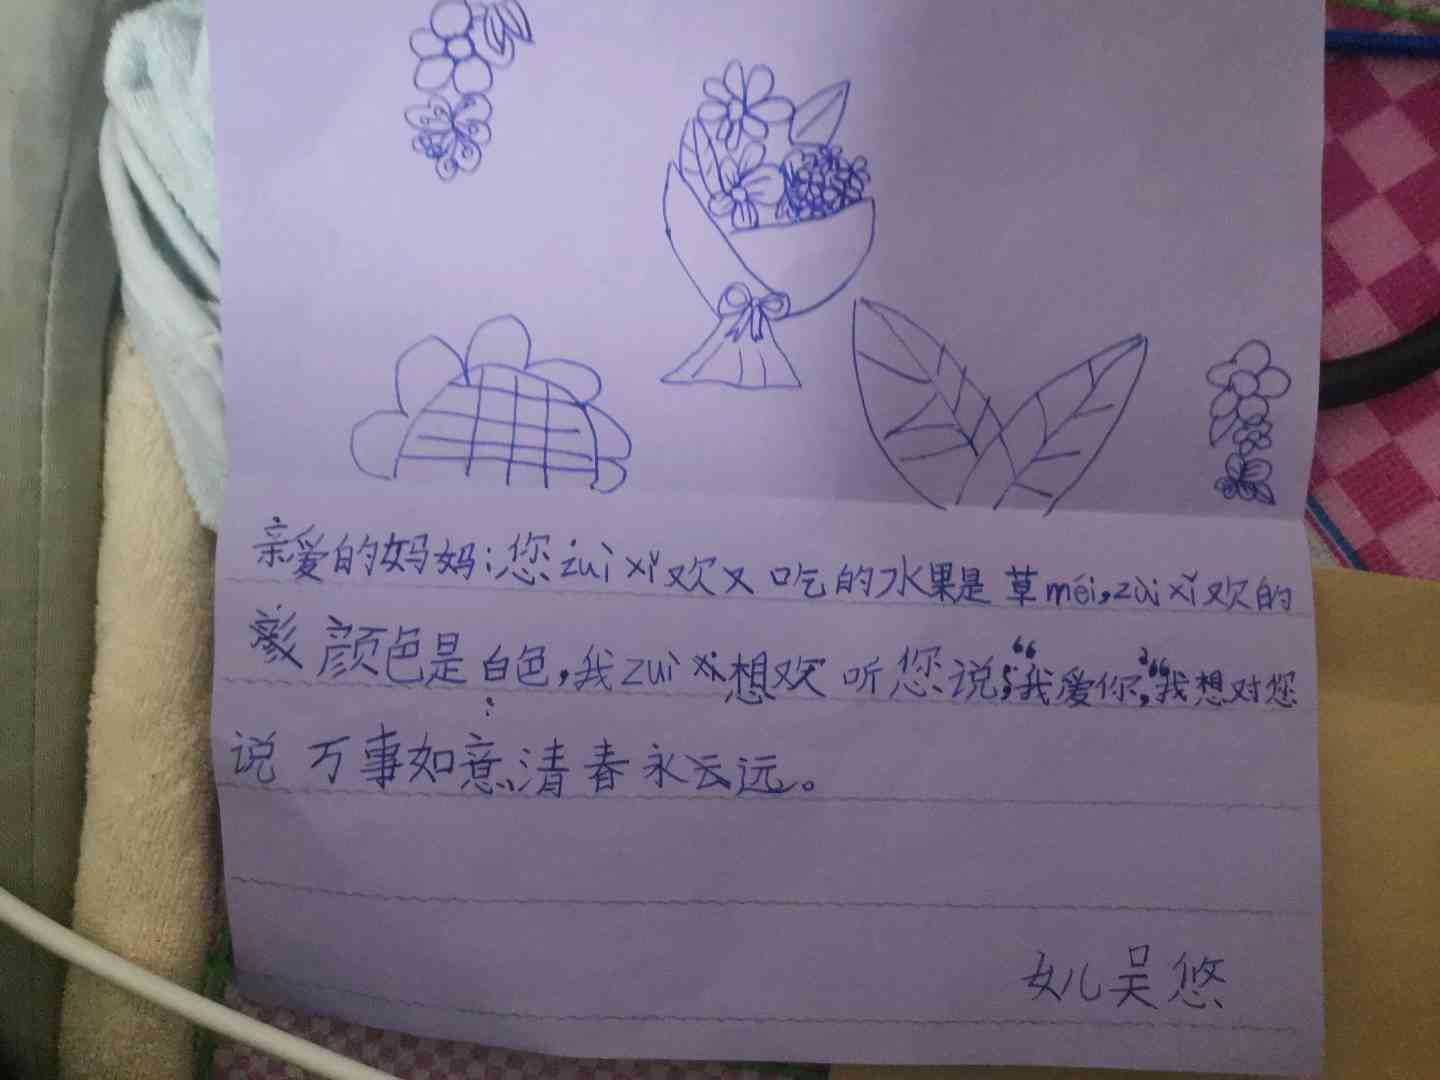 亲爱的妈妈:您zuì xǐ欢又吃的水果是草méi,zùi xǐ欢的
颜色是白色,我zuì xǐ想欢听您说:“我爱你,”我想对您
说:万事如意、清春永云远。
女儿吴悠